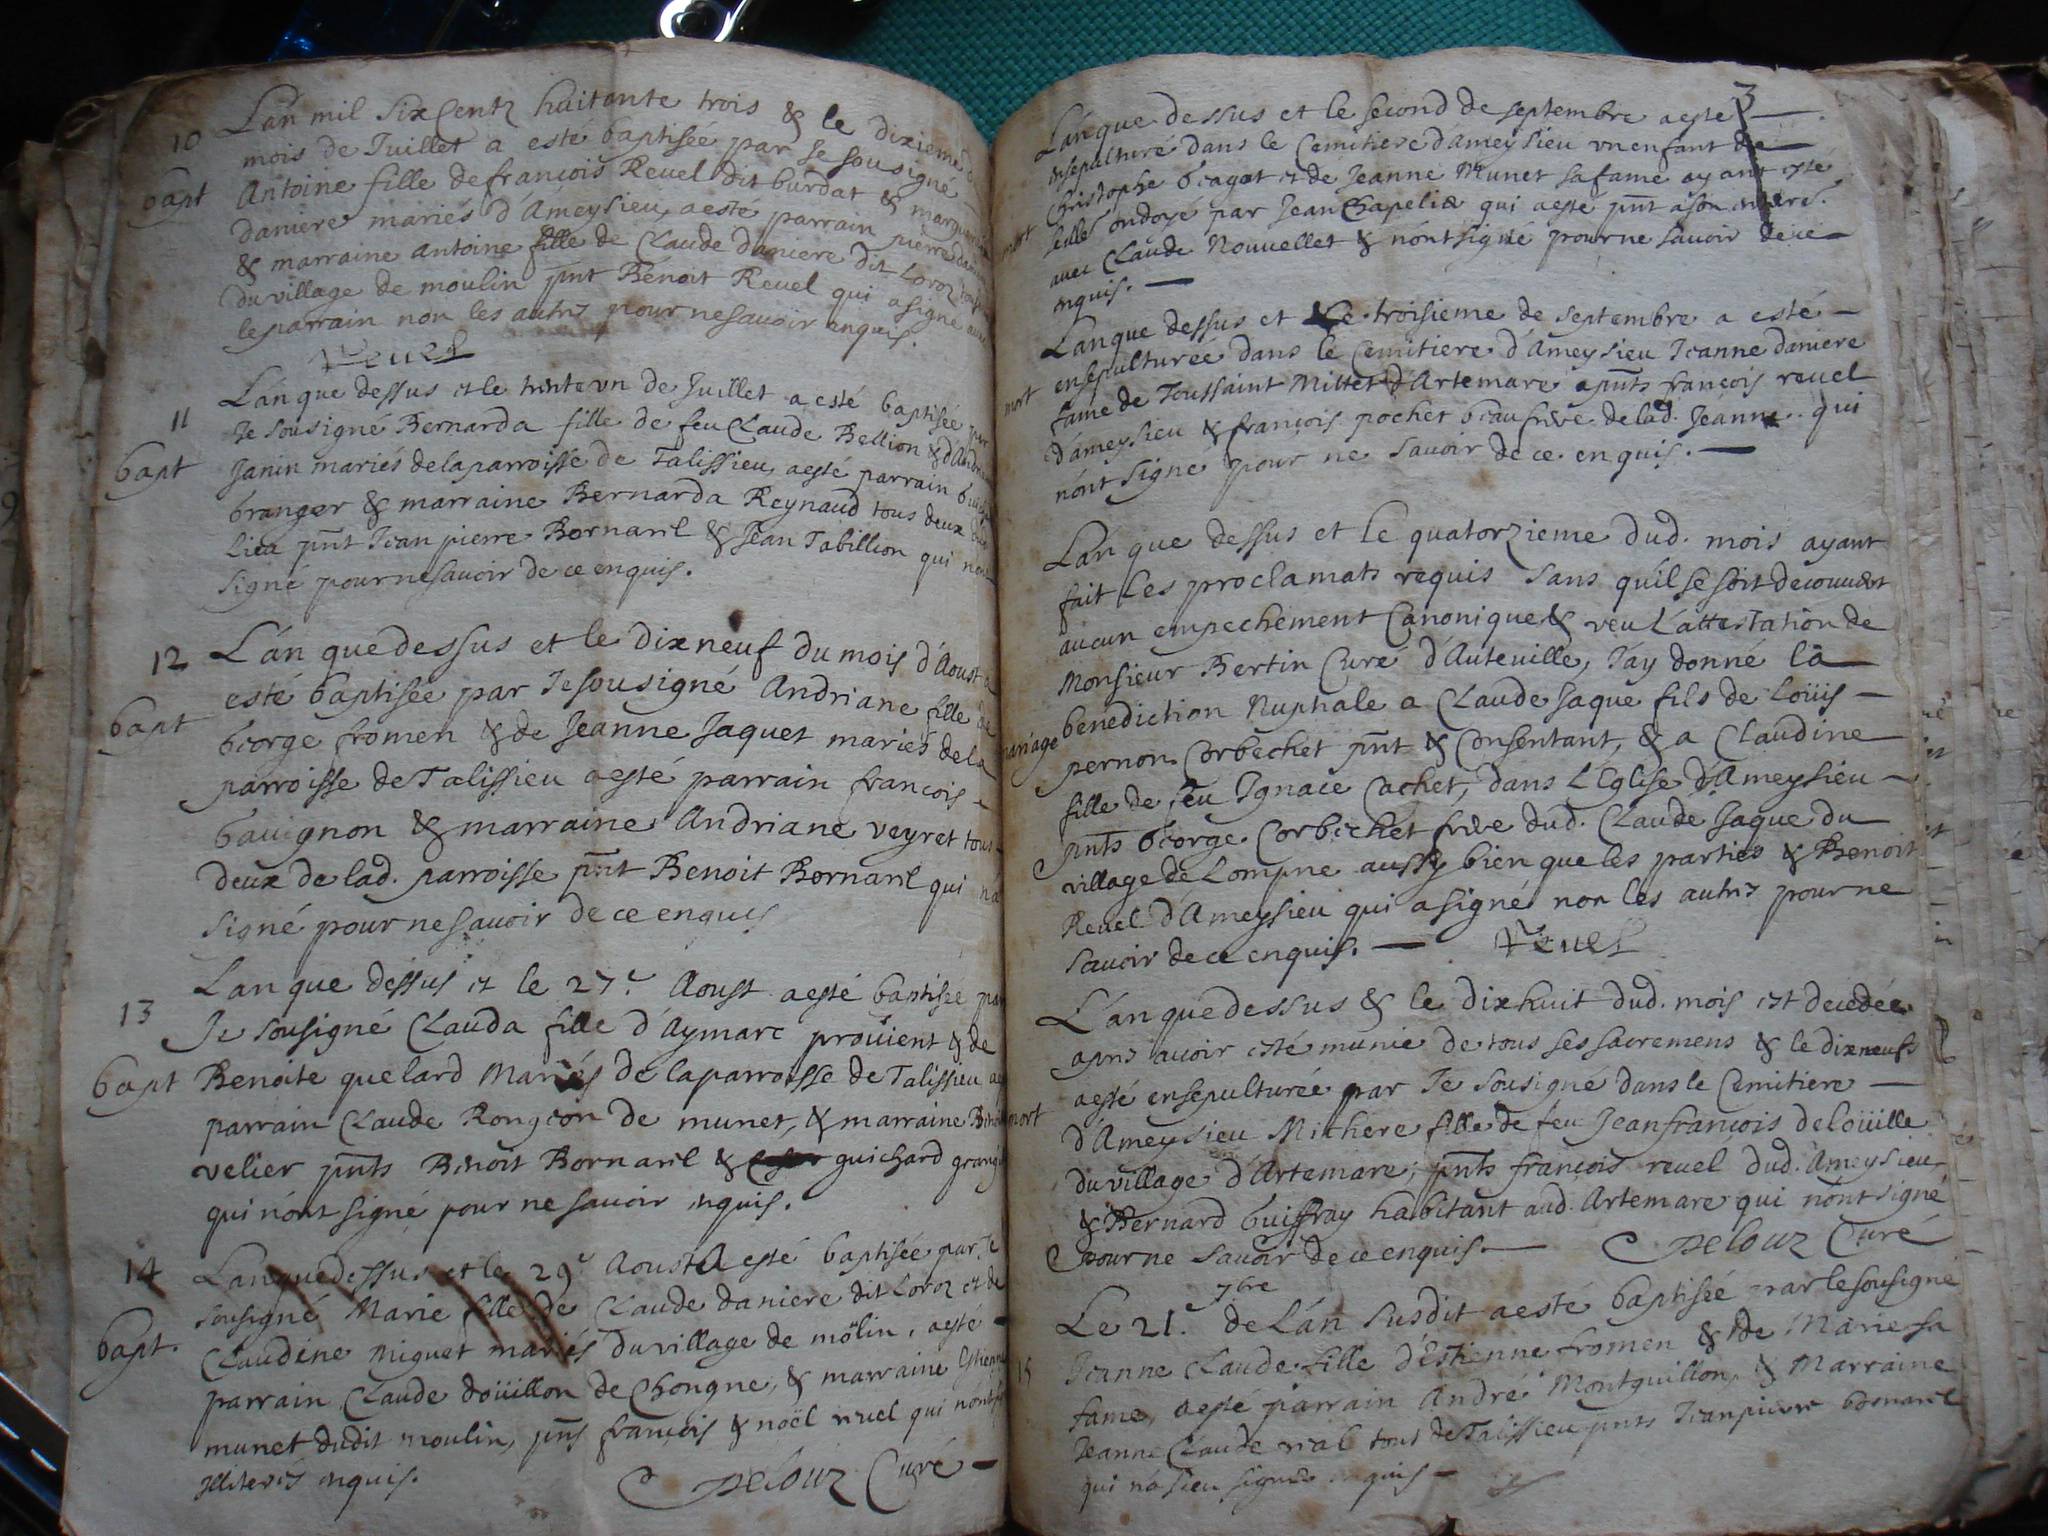 10 L'an mil six centz huitante trois & le dixieme
mois de Juillet a esté baptisée par Je sousigné
bapt Antoine fille de francois Revel dit burdat &
daniere mariés d'Ameysieu, a esté parrain pierre
& marraine Antoine fille de Claude daniere dit Loroz
du village de moulin pnt Benoit Revel qui a signé
le parrain non les autres pour ne savoir enquis.
Revel
11 L'an que dessus et le trente un de Juillet a esté baptisée par
Je sousigné Bernarda fille de feu Claude Bellion &
bapt Janin mariés de la parroisse de Talissieu, a esté parrain
branger & marraine Bernarda Reynaud tous deux
pnt Jean pierre Bornaril & Jean Tabillion qui
signé pour ne savoir de ce enquis.
12 L'an que dessus et le dixneuf du mois d'Aoust a
esté baptisée par Je sousigné Andriane fille de
bapt George fromen & de Jeanne Jaquet mariés de la
parroisse de Talissieu a esté parrain francois
bavignon & marraine Andriane veyret tous
deux de lad. parroisse pnt Benoit Bornaril qui n'a
signé pour ne savoir de ce enquis
13 L'an que dessus et le 27e Aoust a esté baptisée par
Je sousigné Clauda fille d'Aymarc proüient & de
bapt Benoite quelard Mariés de la parroisse de Talissieu
parrain Claude Rongeon de munet, & marraine
velier pnts Benoit Bornaril & guichard
qui n'ont signé pour ne savoir enquis.
14 L'an que dessus et le 29e Aoust a esté baptisée par Je
sousigné Marie fille de Claude daniere dit Loroz et de
bapt. Claudine Miguet mariés du village de mölin, a esté
parrain Claude doüillon de Chongne, & marraine
munet dudit moulin, pnts francois & noël revel qui
illiterés enquis.
Delouz Curé
3
L'an que dessus et le second de septembre a esté
ensepulturé dans le Cemitiere d'Ameysieu un enfant de
Christophe & de Jeanne Munet sa fame ayant esté
mort ondoyé par Jean Chapelie qui a esté pnt a son
avec Claude Nouvellet & n'ont signé pour ne savoir de ce
enquis.
L'an que dessus et le troisieme de septembre a esté
ensepulturée dans le Cemitiere d'Ameysieu Jeanne daniere
mort fame de Toussaint Millet d'Artemare, a pnts françois revel
d'ameysieu & françois pochet beaufrere de lad. Jeanne qui
n'ont signé pour ne savoir de ce enquis.
L'an que dessus et le quatorzieme dud. mois ayant
fait les proclamats requis sans qu'il se soit decouvert
aucun empechement Canonique & veu l'attestation de
Monsieur Bertin Curé d'Auteville, J'ay donné la
mariage benediction Nuptiale a Claude Jaque fils de Loüis
pernon Corbechet pnt & Consentant, & a Claudine
fille de feu Ignace Cachet, dans L'Eglise d'Ameysieu
pnts George Corbechet frere dud. Claude Jaque du
village de Lompne aussy bien que les parties & Benoit
Revel d'Ameysieu qui a signé non les autres pour ne
savoir de ce enquis. Revel
L'an que dessus & le dixhuit dud. mois est decedée
apres avoir esté munie de tous ses sacremens & le dixneufs
a esté ensepulturée par Je sousigné dans le Cemitiere
mort d'Ameysieu Michere fille de feu Jeanfrançois deloüille
du village d'Artemare, pnts francois revel dud. Ameysieu
& Bernard buiffray habitant aud. Artemare qui n'ont signé
pour ne savoir de ce enquis. Delouz Curé
7bre
Le 21. de L'an susdit a esté baptisée par le sousigné
15 Jeanne Claude fille d'Estienne fromen & de Marie sa
fame, a esté parrain André Montguillon, & Marraine
Jeanne Claude rial tout de Talissieu pnts Jean pierre bornaril
qui n'a sceu signer enquis